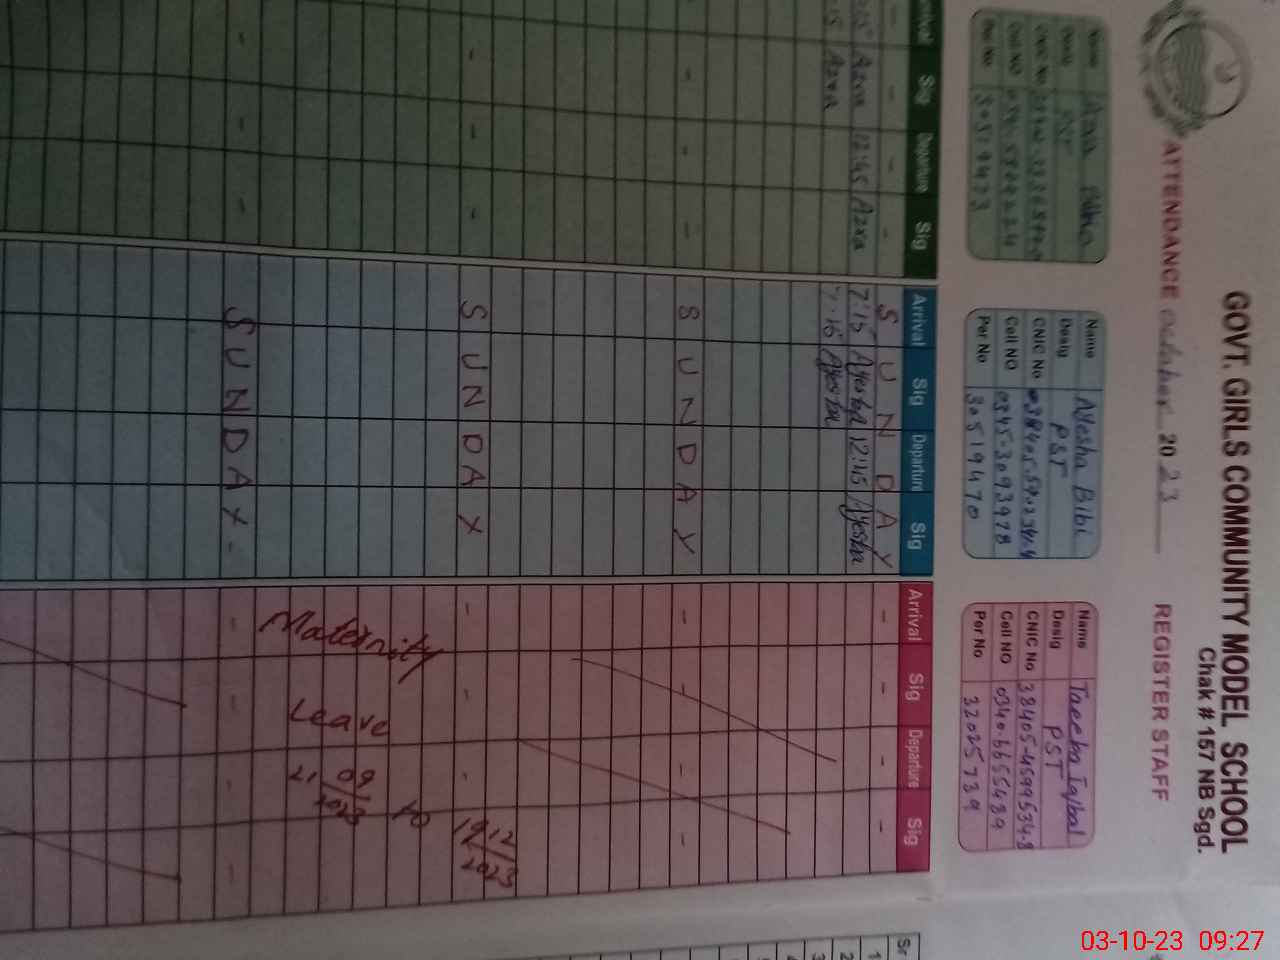 GOVT. GIRLS COMMUNITY MODEL SCHOOL
Chak # 157 NB Sgd.
ATTENDANCE October 2023 REGISTER STAFF
Name Azra
Desig PST
CNIC No
Cell NO
Per No
Name Ayesha Bibi
Desig PST
CNIC No
Cell NO 0345-3093978
Per No 30519470
Name Taeeba Iqbal
Desig PST
CNIC No 38405-4599534-8
Cell NO 0340-6655489
Per No 32025739
Arrival Sig Departure Sig Arrival Sig Departure Sig Arrival Sig Departure Sig Sr
- - - - S U N D A Y - - - - 1
7:15 Azra 12:45 Azra 7:15 Ayesha 12:45 Ayesha 2
7:15 Azra 7:15 Ayesha 3
4
- - - - S U N D A Y - - - -
- - - - S U N D A Y - - -
Maternity
Leave
21/09/2023 to 19/12/2023
- - - - S U N D A Y - - - - -
03-10-23 09:27